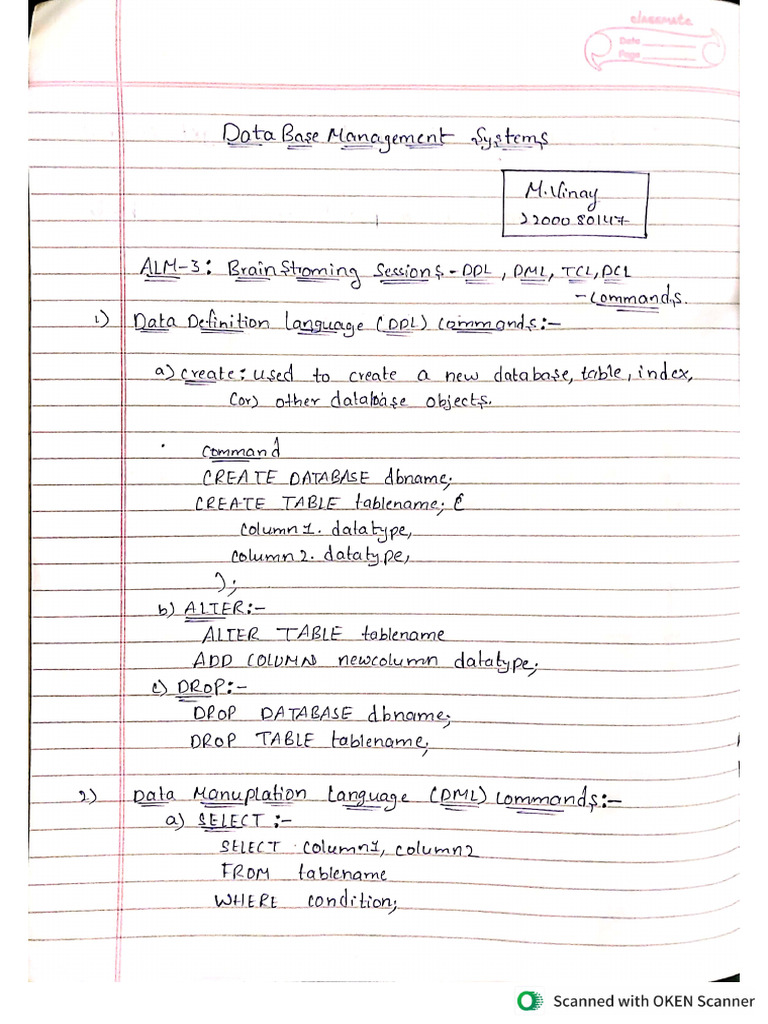 classmate
Date
Page
Data Base Management Systems
M.Vinay
2200080147
ALM-3: Brain Stroming Sessions - DDL, DML, TCL, DCL
- Commands.
1) Data Definition Language (DDL) commands:-
a) create: used to create a new database, table, index,
(or) other database objects.
Command
CREATE DATABASE dbname;
CREATE TABLE tablename; (
column1. datatype,
column2. datatype,
);
b) ALTER:-
ALTER TABLE tablename
ADD COLUMN newcolumn datatype;
c) DROP:-
DROP DATABASE dbname;
DROP TABLE tablename;
2) Data Manuplation Language (DML) commands:-
a) SELECT :-
SELECT column1, column2
FROM tablename
WHERE condition;
Scanned with OKEN Scanner